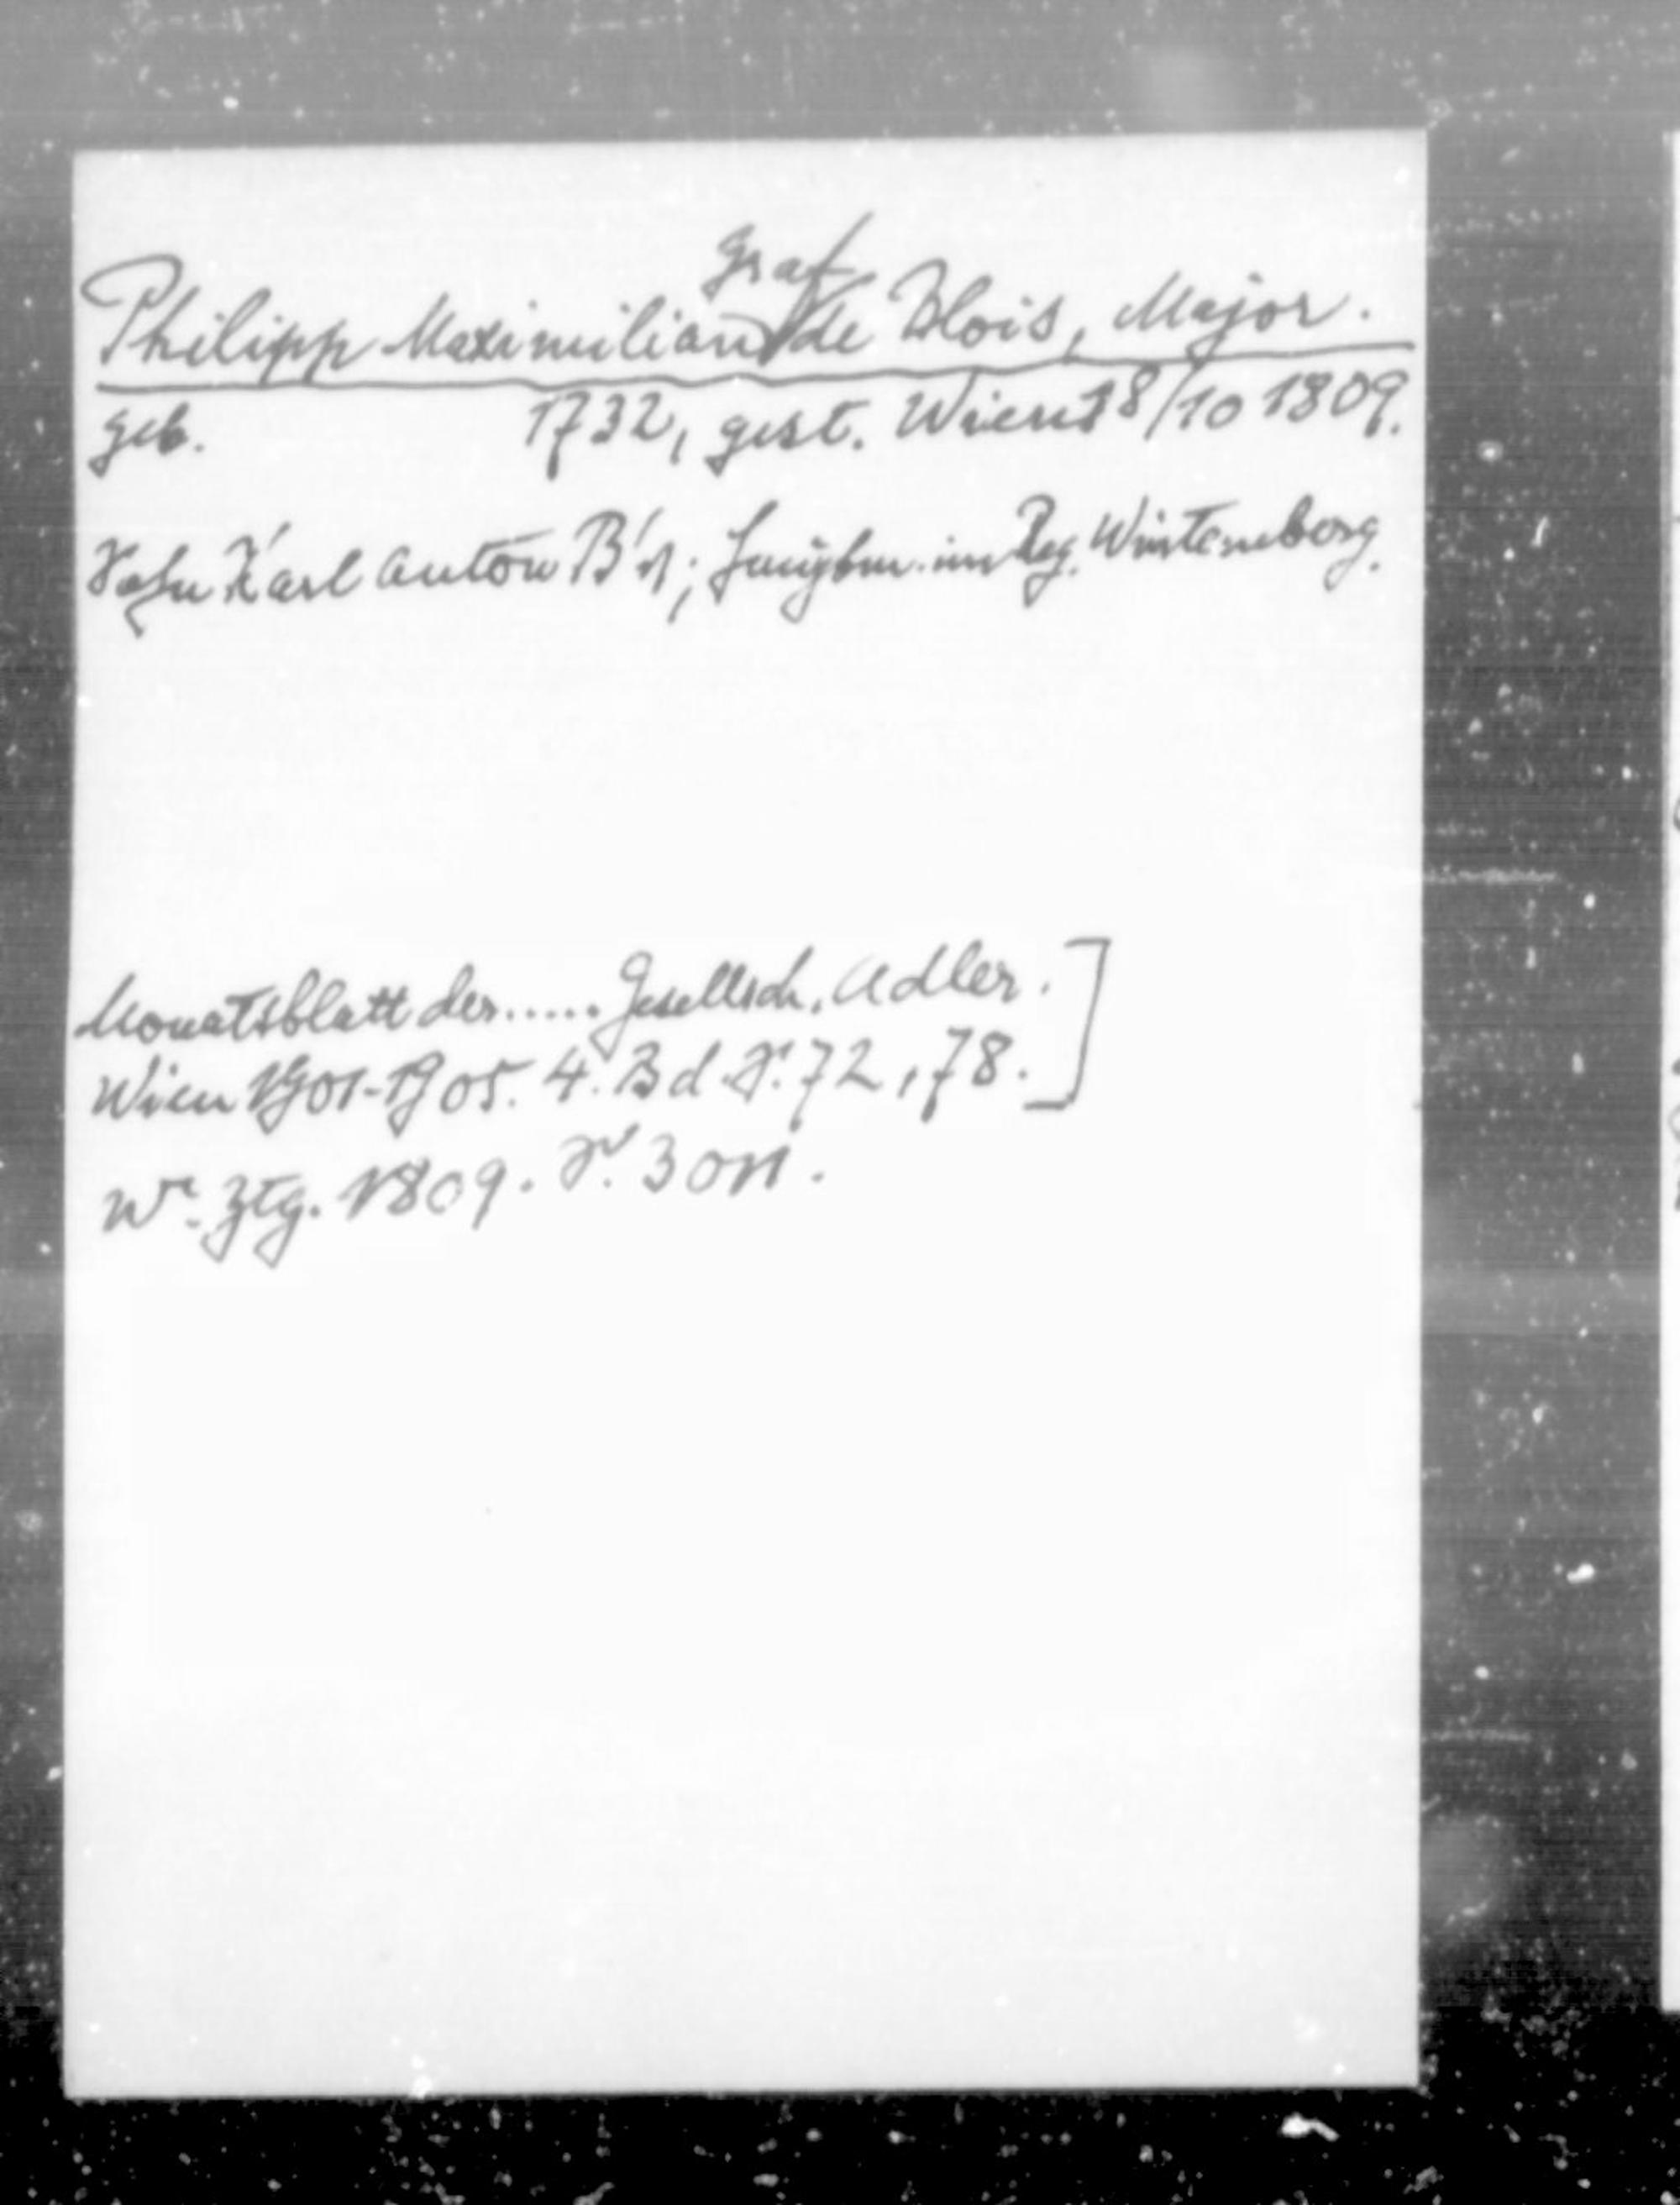 Graf
Philipp Maximilian de Blois, Major.
geb. 1732, gest. Wien 18/10 1809.
Sohn Karl Anton B's; im Reg. Würtemberg.
Monatsblatt der..... Gesellsch. Adler.
Wien 1901-1905. 4. Bd. S. 72, 78.]
Wr. Ztg. 1809. S. 3011.